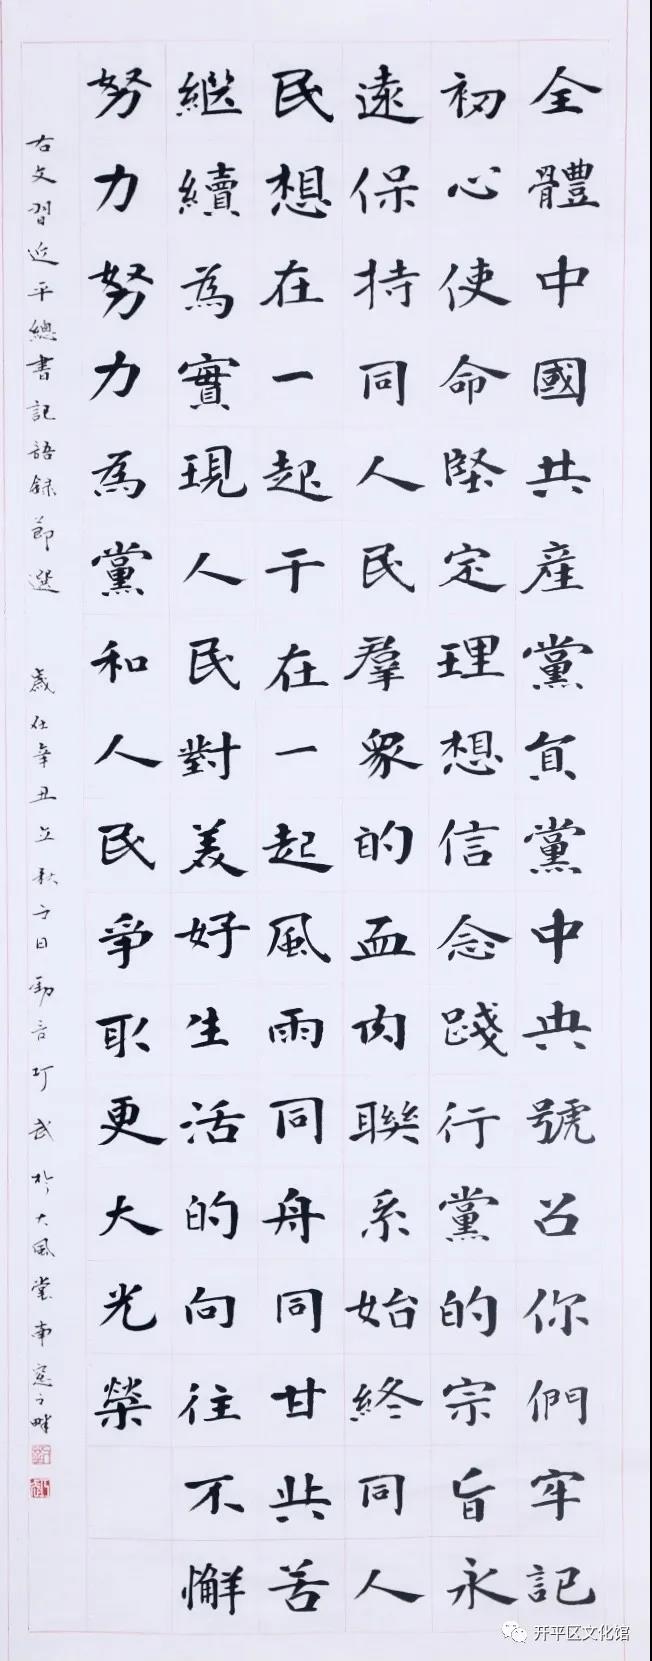 全體中國共産黨員黨中央號召你們牢記
初心使命堅定理想信念踐行黨的宗旨永
遠保持同人民羣衆的血肉聯系始終同人
民想在一起干在一起風雨同舟同甘共苦
繼續為實現人民對美好生活的向往不懈
努力努力為黨和人民爭取更大光榮
右文習近平總書記語録節選 歲在辛丑立秋 日 武於大風堂南窓之畔
开平区文化馆